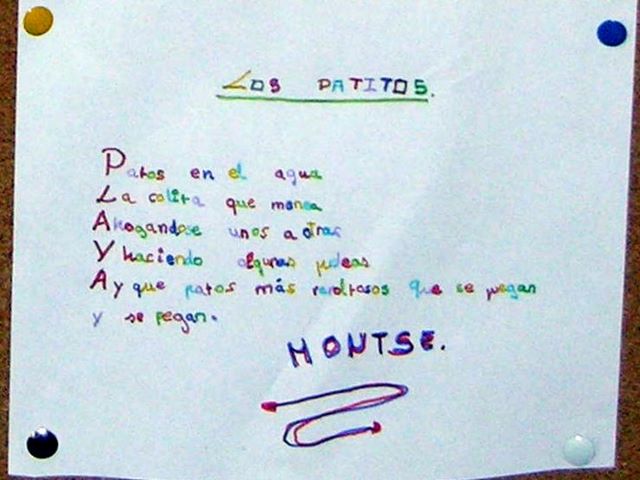 LOS PATITOS.
Patos en el agua
La colita que menea
Ahogandose unos a otros
Y haciendo algunas peleas
Ay que patos más revoltosos que se pegan
y se pegan.
MONTSE.